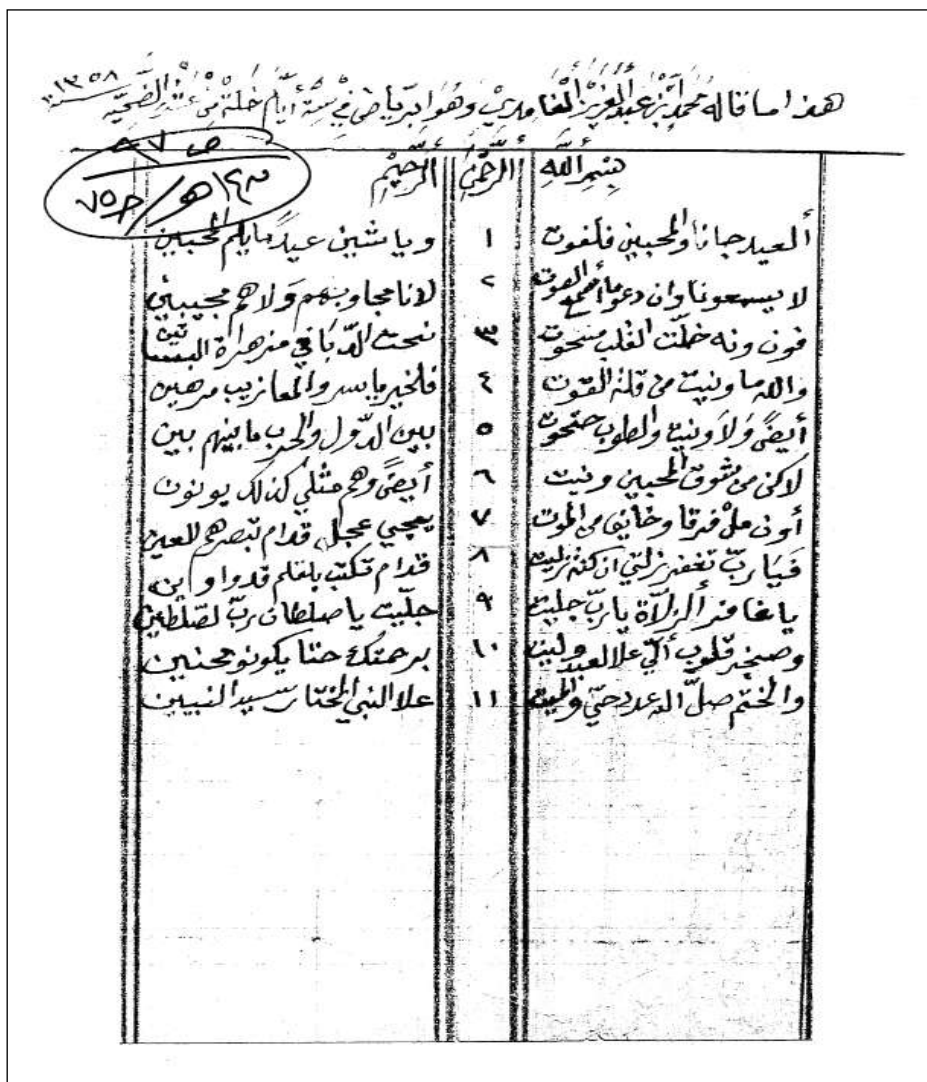 هذا ما قاله محمد ابن عبد العزيز الغامدي وهوا برياض في ستة أيام خلة من عشر الضحيه سنة ١٣٥٨
ص ٩٧
بسم الله الرحمن الرحيم
ألعيد جانا والمحبين فلفوت ١ ويا شين عيدً ما يلم المحبين
لا يسمعونا وان دعو ما أسمع الصوت ٢ لانا مجاوبهم ولا هم مجيبين
فون ونه خلت القلب منحوت ٣ نحت الدبا في مزهرة البساتين
والله ما ونيت من قلة القوت ٤ فلخير يا سر والمعازيب مرهين
أيضً ولا ونيت والطوب حتحوت ٥ بين الدول والحرب ما بينهم بين
لاكن من شوق المحبين ونيت ٦ أيضً وهم مثلي كذلك يونون
أون من فرقا وخايف من الموت ٧ يجي عجل قدام تبصرهم العين
فيا ربّ تغفر زلتي ان كنة زليت ٨ قدام تكتب بلقلم فدواوين
يا غافر ألزلاة يا ربّ جليت ٩ جليت يا صلطان ربّ لصلطين
وصخر قلوب ألي علا لعبد وليت ١٠ برحمتك حتا يكونو محنين
والختم صلّ الله عدد حيّ والميت ١١ علا النبي المختار سيد النبيين